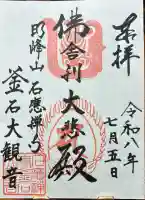 奉拝
令和八年
七月五日
佛舎利大悲殿
明峰山
石應禅寺
釜石大観音